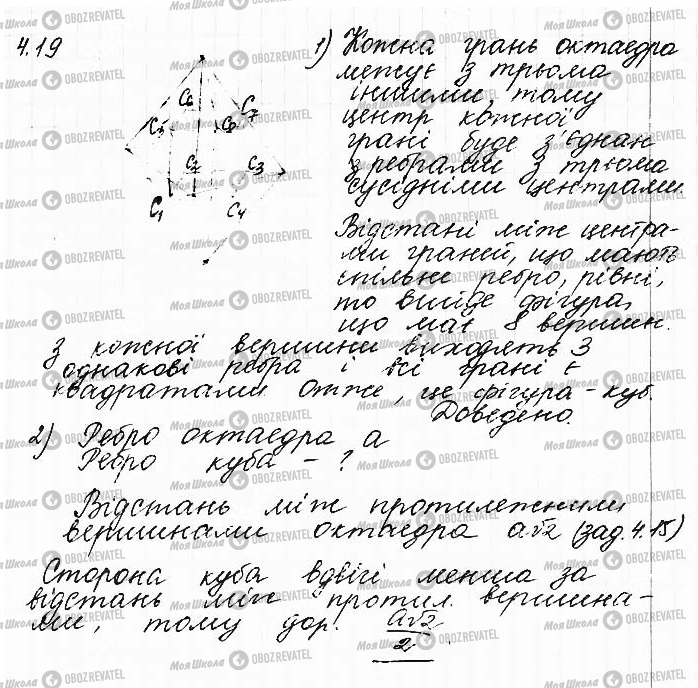 4.19
1) Кожна грань октаедра
межує з трьома
іншими, тому
центр кожної
грані буде з'єднан
з ребрами з трьома
сусідніми центрами.
C6
C5
C8
C7
C2
C3
C1
C4
Відстані між центра-
ми граней, що мають
спільне ребро, рівні,
то вийде фігура,
що має 8 вершин.
З кожної вершини виходять 3
однакові ребра і всі грані є
квадратами. Отже, це фігура - куб.
Доведено.
2) Ребро октаедра a
Ребро куба - ?
Відстань між протилежними
вершинами октаедра a√2 (зад. 4.15)
Сторона куба вдвічі менша за
відстань між протил. вершина-
ми, тому дор. a√2/2